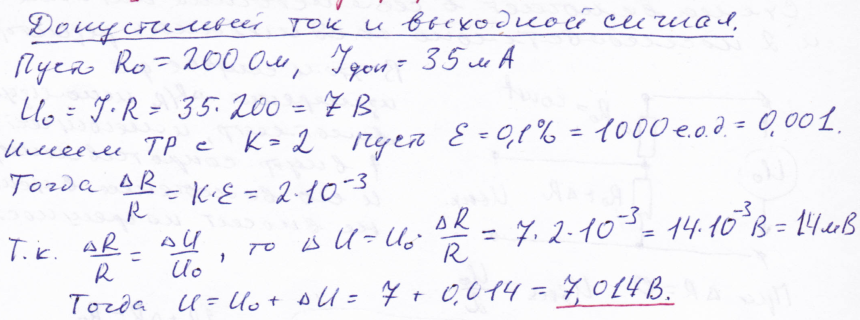 Допустимый ток и выходной сигнал.
Пусть R₀ = 200 Ом, Jдоп = 35 мА
U₀ = J·R = 35·200 = 7 В
имеем ТР с K = 2 Пусть ε = 0,1% = 1000 е.о.д. = 0,001.
Тогда ΔR/R = K·ε = 2·10⁻³
Т.к. ΔR/R = ΔU/U₀, то ΔU = U₀·ΔR/R = 7·2·10⁻³ = 14·10⁻³ В = 14 мВ
Тогда U = U₀ + ΔU = 7 + 0,014 = 7,014 В.